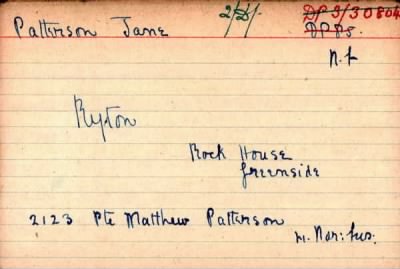 Patterson Jane 2/D/. DP 3/30804
DPPS.
N.F
Ryton
Rock House
Greenside
2123 Pte Matthew Patterson
N. Nor: Fus: